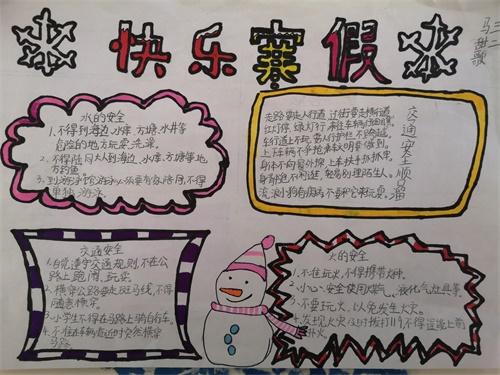 快乐寒假
三二
马甜颖
水的安全
1.不得到海边、水库、方塘、水井等
危险的地方玩耍、洗澡。
2.不得陪同大人到海边、水库、方塘等地
方钓鱼。
3.到游泳馆游泳必须要有家长陪同,不得
单独游泳。
交通安全顺口溜
走路要走人行道,过街要走横行道,
红灯停,绿灯行,
车行道上不玩耍,
上下车辆不争抢,来往文明要做到。
身体不向窗外探,上车扶手抓牢
交通安全
1.自觉遵守交通规则,不在公
路上跑闹、玩耍。
2.横穿公路要走斑马线,不得
随意横穿。
3.小学生不得在马路上骑自行车。
4.不准在车辆临近时突然横穿
马路。
火的安全
1.不准玩火,不得携带火种。
2.小心、安全使用煤气、液化气灶具等。
3.不要玩火,以免发生火灾。
4.发现火灾及时拨打119,不得逞能上前
扑火。